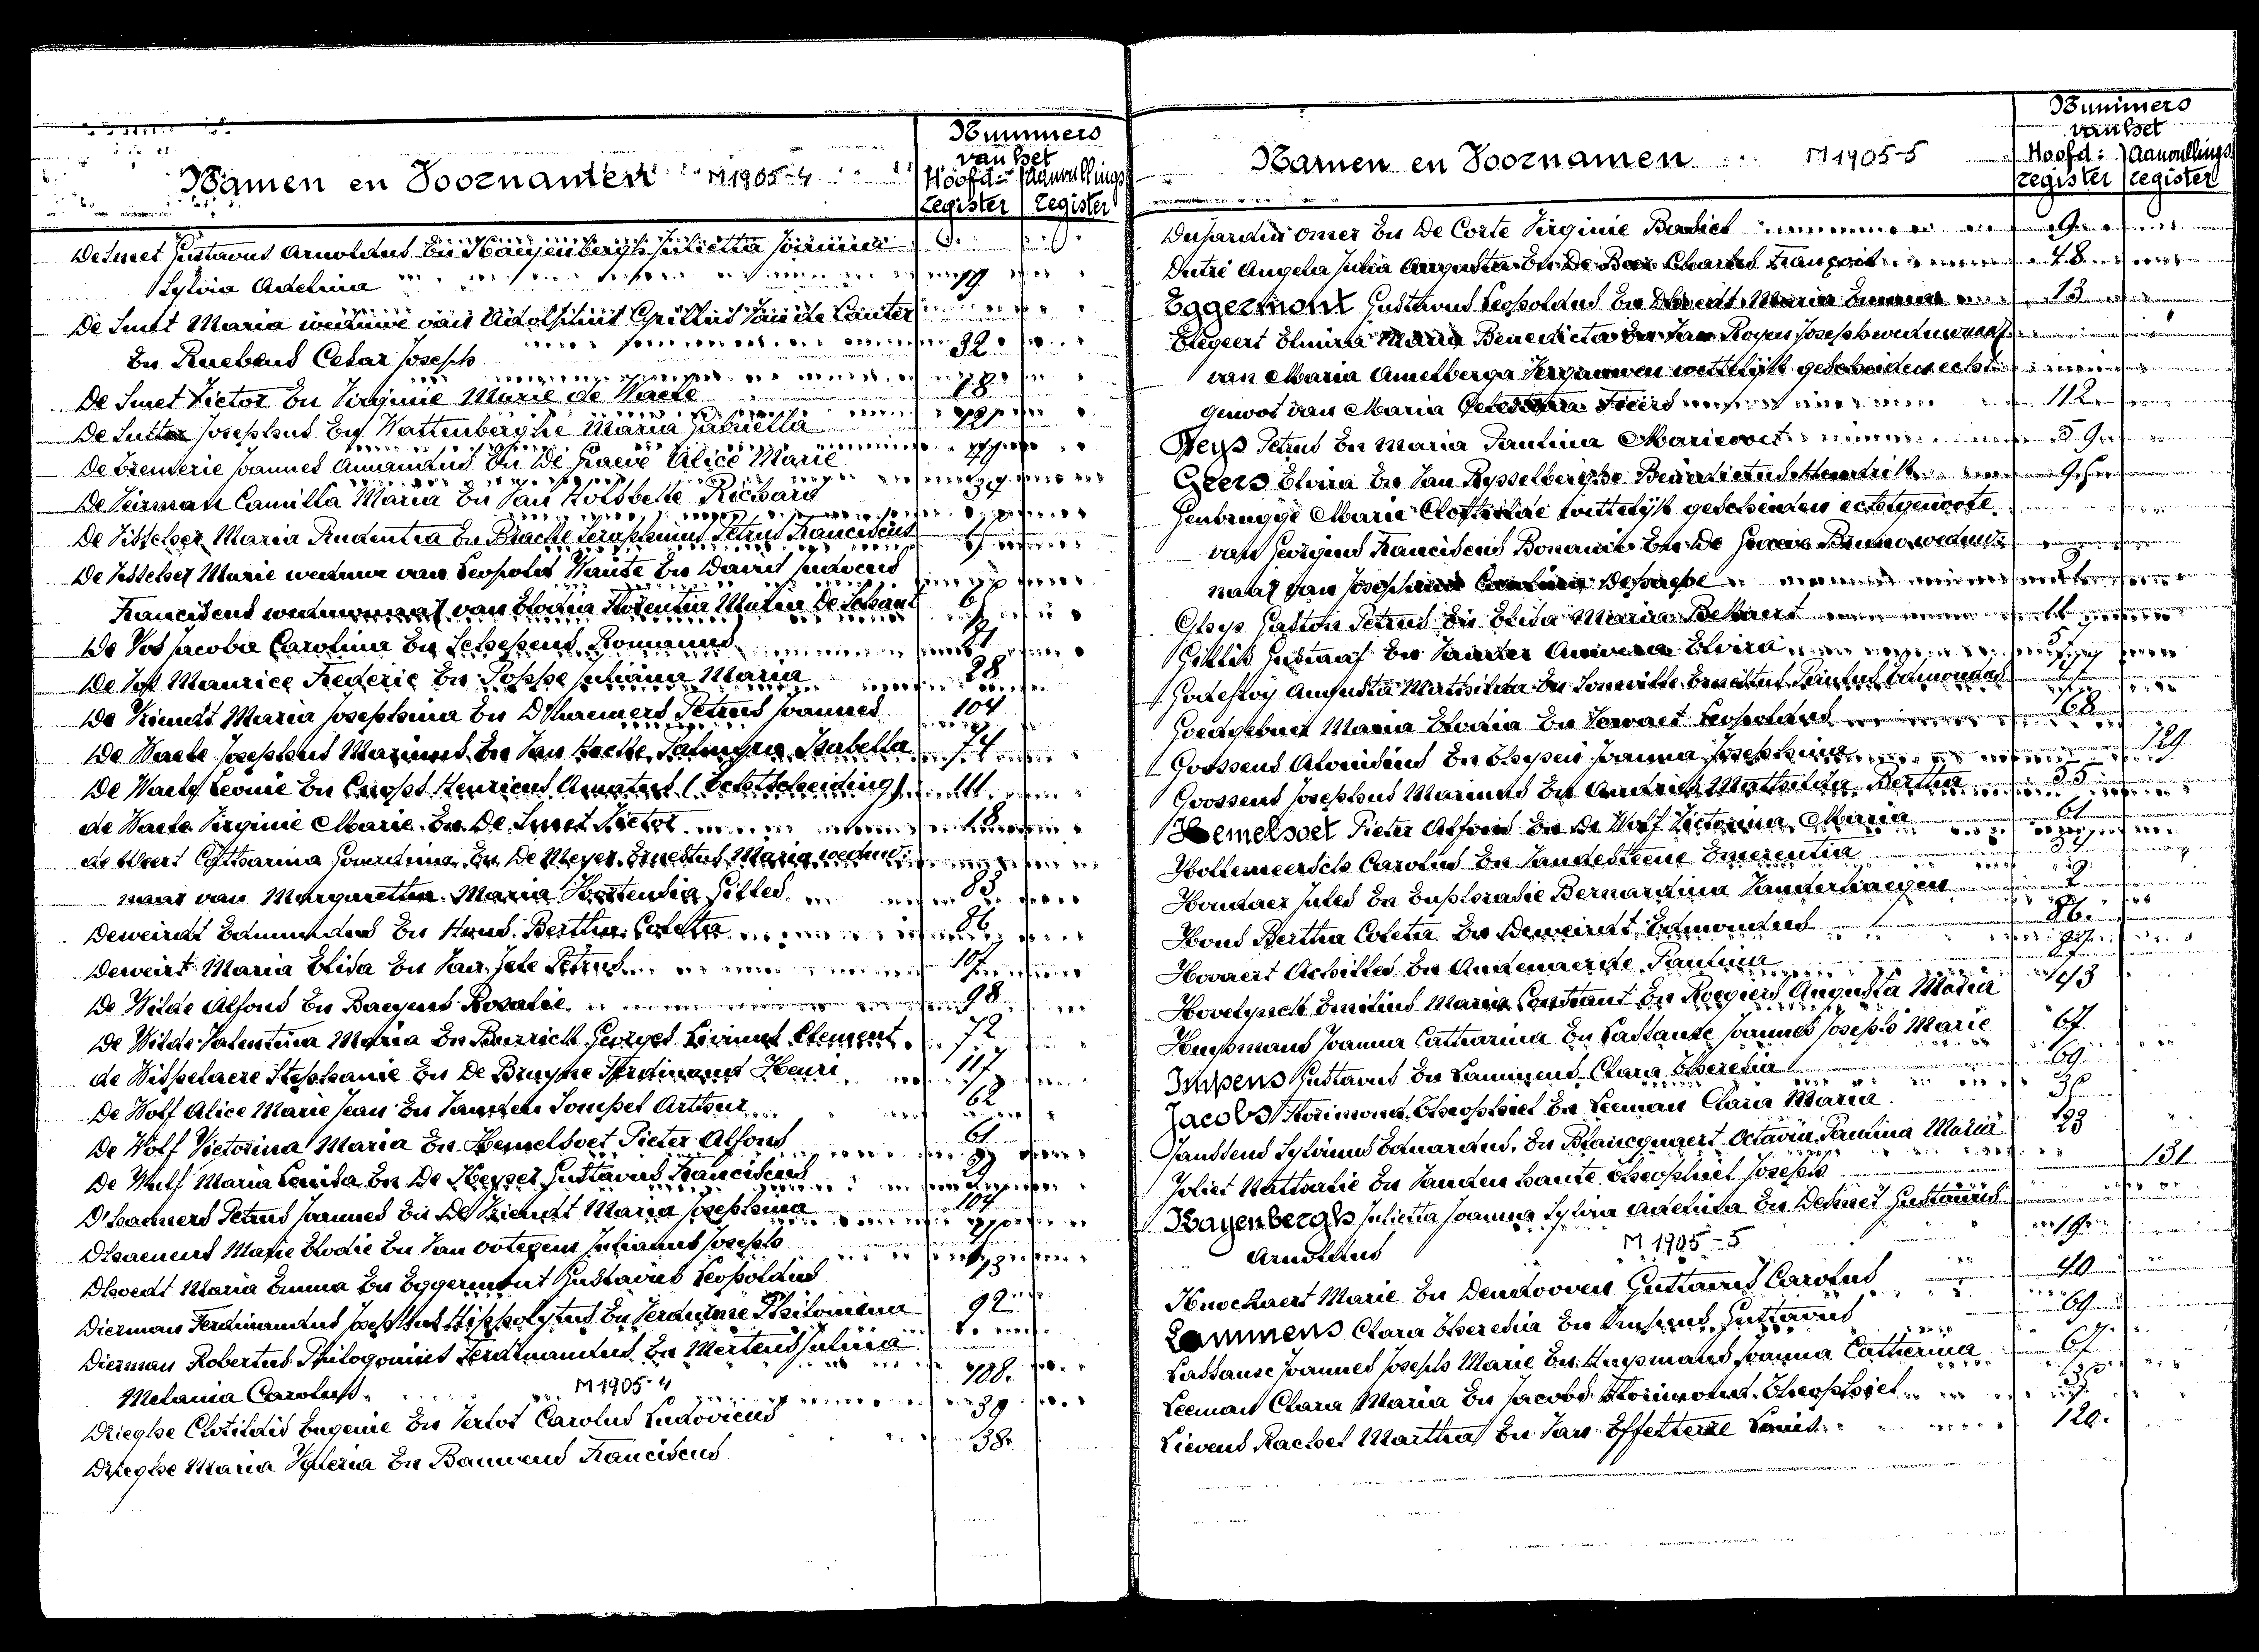 Nummers
van het
Namen en Voornamen M1905-4 Hoofd- Aanvullings
register register
De Smet Gustavus Arnoldus En Kayenbergh Julietta Joanna
Sylvia Adelina 19
De Smet Maria weduwe van Adolphus Grillus Van de Cauter
En Ruebens Cesar Joseph 32
De Smet Victor En Virginie Marie de Waele 18
De Sutter Josephus En Wattenberghe Maria Gabriella 121
De Tremerie Joannes Amandus En De Graeve Alice Marie
De Veirman Camilla Maria En Van Holsbeke Richard
De Visscher Maria Prudentia En Bracke Seraphinus Petrus Franciscus
De Visscher Marie weduwe van Leopold Wante En David Judocus
Franciscus weduwnaar van Elodia Florentia Maria De Schant
De Vos Jacoba Carolina En Schepens Romanus
De Vos Maurice Frederic En Poppe Juliana Maria 28
De Vriendt Maria Josephina En D'haemers Petrus Joannes 104
De Waele Josephus Marinus En Van Hecke Palmyra Isabella 74
De Waele Leonie En Cnops Henricus Amatus (Echtscheiding) 111
de Waele Virginie Marie En De Smet Victor 18
de Weert Catharina Gourdina En De Meyer Ernestus Maria weduw-
naar van Margaretha Maria Hortensia Gilles 83
Deweirdt Edmundus En Hons Bertha Coleta 86
Deweirt Maria Elisa En Van Jele Petrus 107
De Wilde Alfons En Baeyens Rosalie 98
De Wilde Valentina Maria En Burrick Georges Livinus Clement 72
de Wispelaere Stephanie En De Bruyne Ferdinand Henri 117
De Wolf Alice Marie Jean En Vanden Sompel Arthur 62
De Wolf Victorina Maria En Hemelsoet Pieter Alfons 61
De Wulf Maria Louisa En De Keyser Gustavus Franciscus 29
D'haemers Petrus Joannes En De Vriendt Maria Josephina 104
Dhaenens Marie Elodie En Van Ootegem Julianus Joseph
Dhoedt Maria Emma En Eggermont Gustavus Leopoldus 13
Dierman Ferdinandus Josephus Hippolytus En Verdurme Philomena 92
Dierman Robertus Philogonius Ferdinandus En Mertens Julia
Melania Carolus M1905-4 108
Drieghe Clotildis Eugenie En Verlot Carolus Ludovicus 39
Drieghe Maria Valeria En Bauwens Franciscus 38
Nummers
van het
Namen en Voornamen M1905-5 Hoofd- Aanvullings
register register
Dujardin Omer En De Corte Virginie 9
Dutré Angela Julia Augusta En De Baer Charles François 48
Eggermont Gustavus Leopoldus En Dhoedt Maria Emma 13
Elegeert Elmira Maria Benedicta En Van Royen Joseph weduwnaar
van Maria Amelberga Vergauwen wettelijk gescheiden echt-
genoot van Maria 112
Feys Petrus En Maria Paulina Marievoet 59
Geers Elvira En Van Rysselberghe Benedictus Hendrik
Genbrugge Marie Clothilde wettelijk gescheiden echtgenoote
van Georgius Franciscus Bonami En De Graeve Bruno weduw-
naar van Josephina Desaghe
Ghys Gaston Petrus En Elisa Maria Bekaert
Gillis Gustaaf En Vander Elvira
Godefroy Augusta Mathilda En Sonville Emilius Paulus Edmondus
Goedgebuer Maria Elodia En Vervaet Leopoldus 68
Goossens Aloisius En Gheysen Joanna Josephina 129
Goossens Josephus Marinus En Andries Mathilda Bertha 55
Hemelsoet Pieter Alfons En De Wolf Victorina Maria 61
Hollemeersch Carolus En Vandesteene Emerentia
Hondaer Jules En Euphrasie Bernardina Vanderhaegen 2
Hons Bertha Coleta En Deweirdt Edmondus 86
Hovaert Achilles En Audenaerde Paulina 87
Hovelynck Emilius Maria Constant En Roegiers Augusta Maria
Huysmans Joanna Catharina En Lassause Joannes Joseph Marie 67
Impens Gustavus En Lammens Clara Theresia 69
Jacobs Florimond Theophiel En Leeman Clara Maria
Janssens Sylvinus Eduardus En Blancquaert Octavia Paulina Maria 123
Joliet Nathalie En Vanden haute Theophiel Joseph 131
Kayenbergh Julietta Joanna Sylvia Adelina En Desmet Gustavus
Arnoldus M1905-5 19
Knockaert Marie En Dendooven Gustavus Carolus 40
Lammens Clara Theresia En Impens Gustavus 69
Lassause Joannes Joseph Marie En Huysmans Joanna Catharina 67
Leeman Clara Maria En Jacobs Florimond Theophiel
Lievens Rachel Martha En Van Effelterre Louis 120